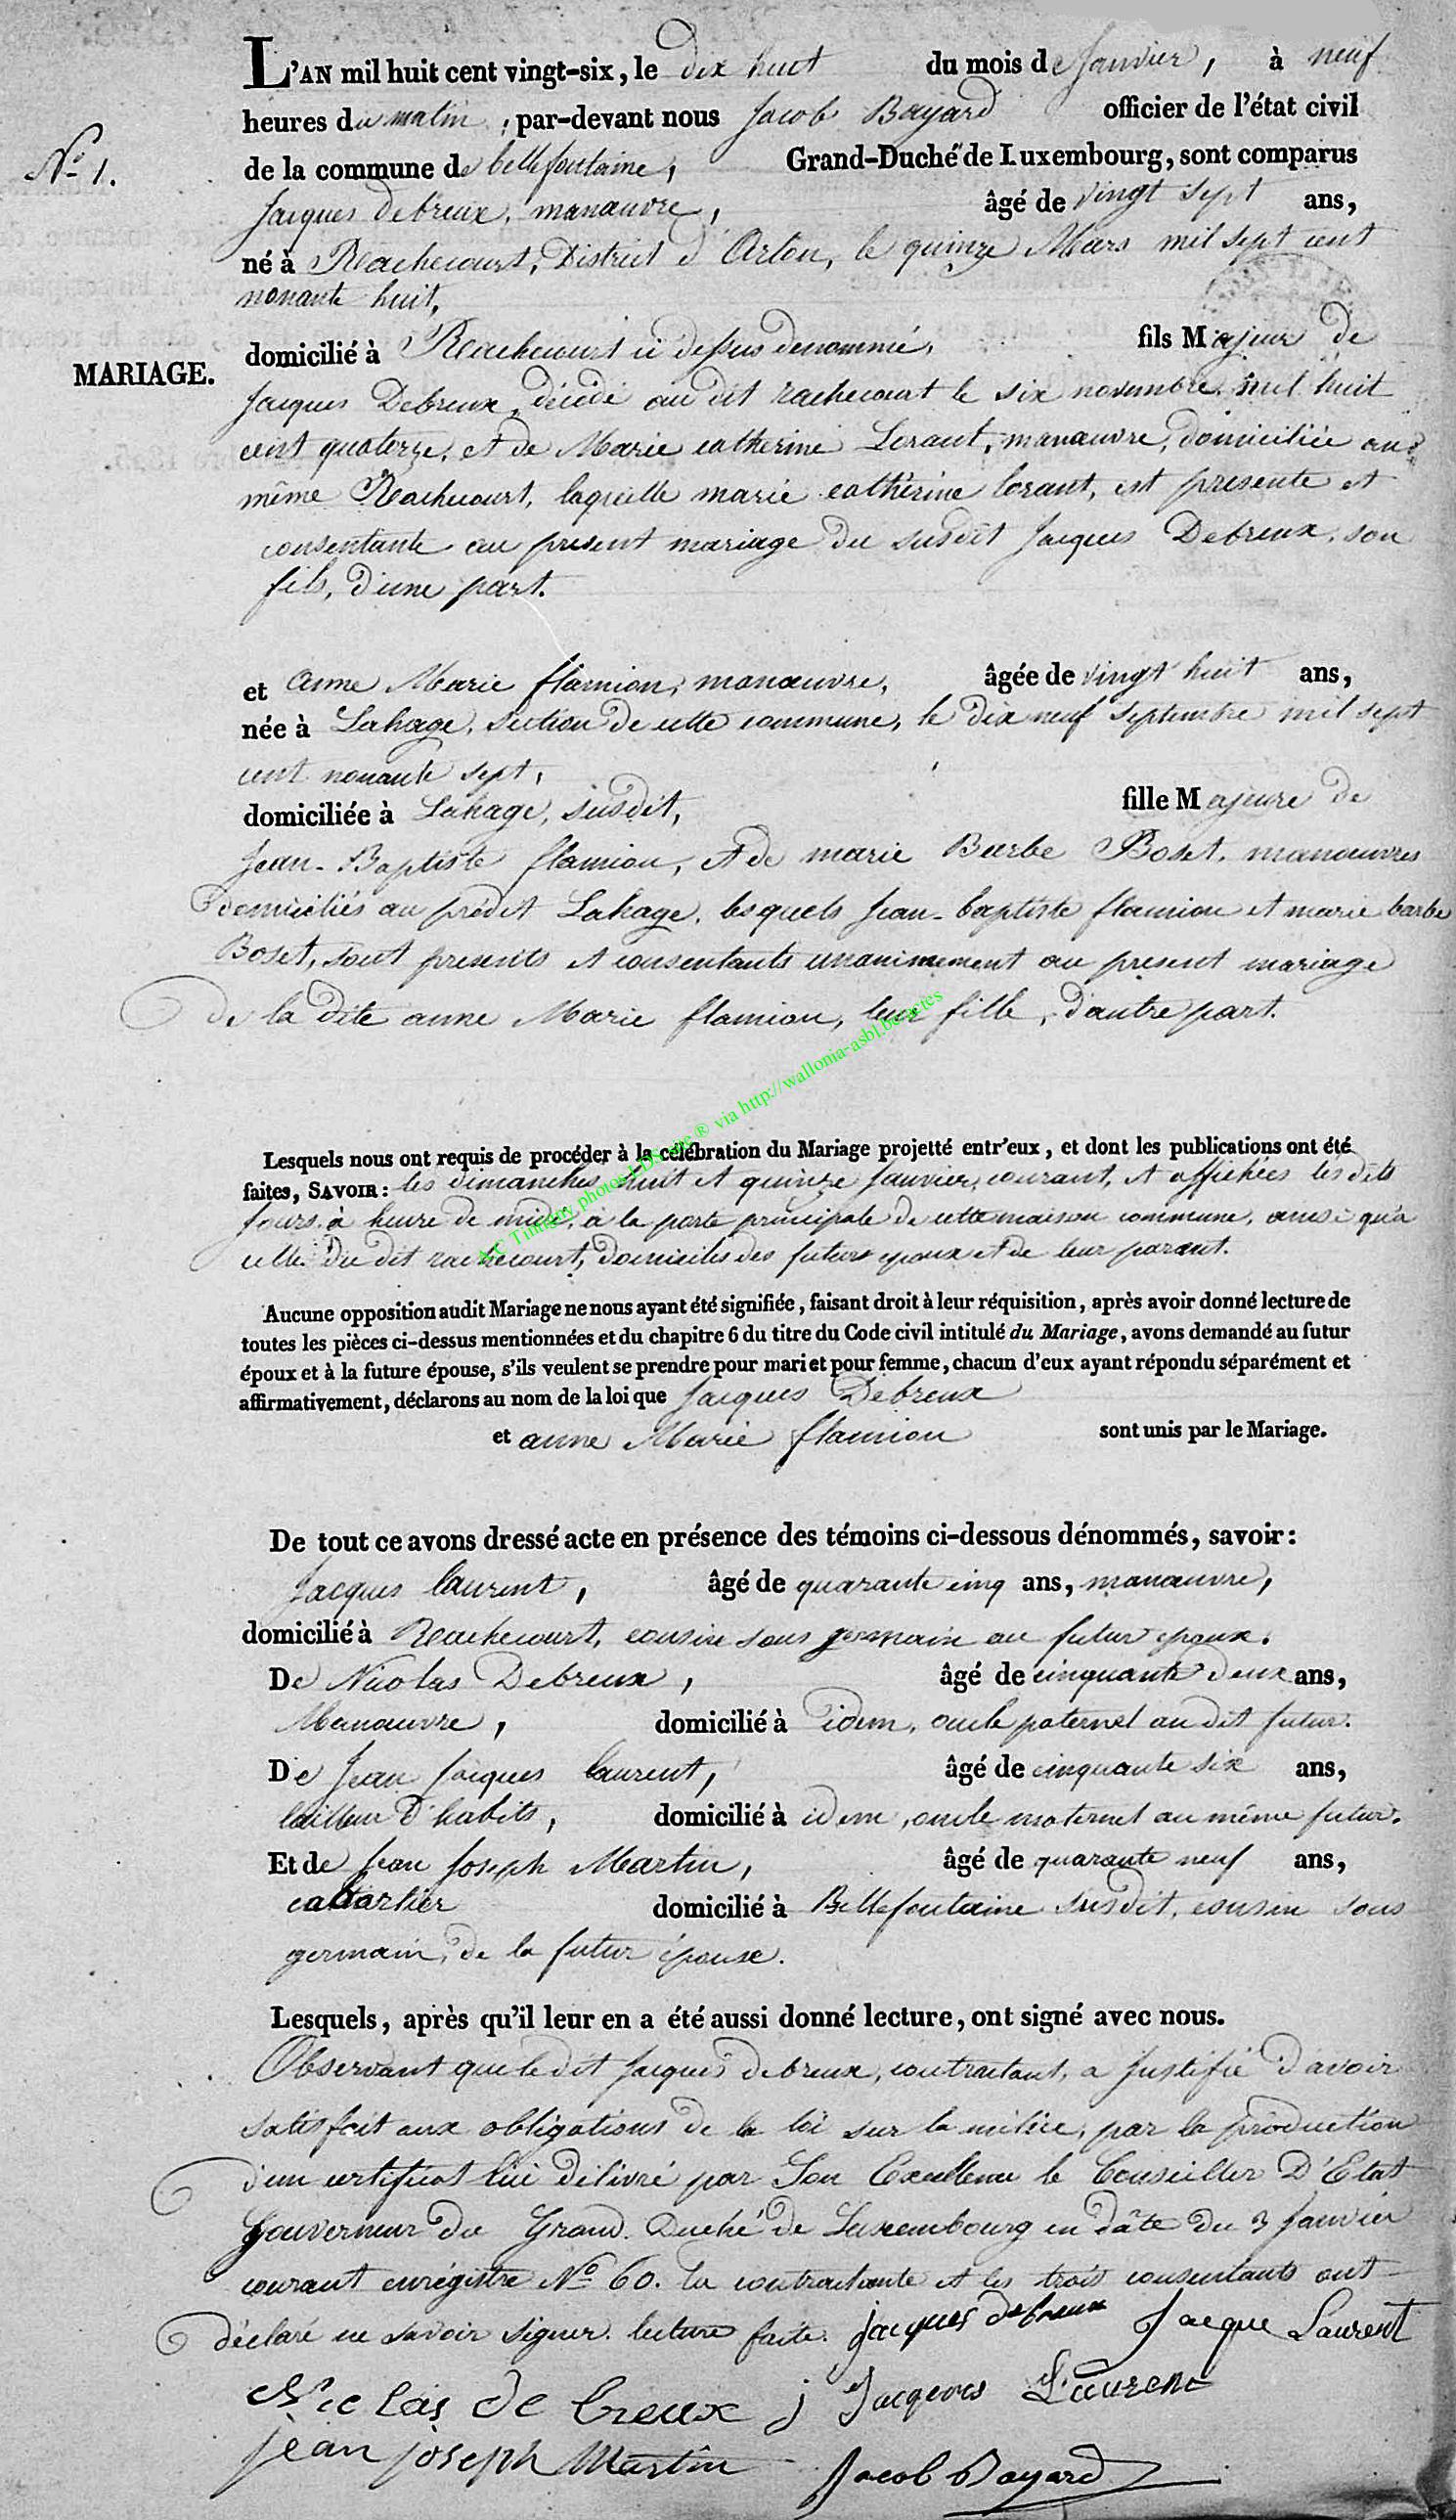 L'AN mil huit cent vingt-six, le dix huit du mois de Janvier, à neuf
heures du matin ; par-devant nous Jacob Bayard officier de l'état civil
N° 1.
de la commune de bellefontaine, Grand-Duché de Luxembourg, sont comparus
Jacques debreux, manœuvre, âgé de vingt sept ans,
né à Rachecourt, District d'Arlon, le quinze Mars mil sept cent
nonante huit,
MARIAGE.
domicilié à Rachecourt ci dessus denommé, fils Majeur de
Jacques Debreux, décédé au dit rachecourt le six novembre mil huit
cent quatorze, et de Marie catherine Lorant, manœuvre, domiciliée au
même Rachecourt, laquelle marie catherine lorant, est presente et
consentante au present mariage du susdit Jacques Debreux, son
fils, d'une part.
et anne Marie flamion, manœuvre, âgée de vingt huit ans,
née à Lahage, section de cette commune, le dix neuf septembre mil sept
cent nonante sept,
domiciliée à Lahage, susdit, fille Majeure de
Jean-Baptiste flamion, et de marie Barbe Boset, manœuvres
domiciliés au prédit Lahage, lesquels Jean-baptiste flamion et marie barbe
Boset, sont presents et consentants unanimement au present mariage
de la dite anne Marie flamion, leur fille, d'autre part.
A.C Tintigny photos LDS ® via http://wallonia-asbl.be/actes
Lesquels nous ont requis de procéder à la célébration du Mariage projetté entr'eux, et dont les publications ont été
faites, SAVOIR: les dimanches huit et quinze Janvier, courant, et affichées les dits
jours à heure de midi, à la porte principale de cette maison commune, ainsi qu'a
celle du dit rachecourt, domiciles des futurs epoux et de leur parent.
Aucune opposition audit Mariage ne nous ayant été signifiée, faisant droit à leur réquisition, après avoir donné lecture de
toutes les pièces ci-dessus mentionnées et du chapitre 6 du titre du Code civil intitulé du Mariage, avons demandé au futur
époux et à la future épouse, s'ils veulent se prendre pour mari et pour femme, chacun d'eux ayant répondu séparément et
affirmativement, déclarons au nom de la loi que Jacques Debreux
et anne Marie flamion sont unis par le Mariage.
De tout ce avons dressé acte en présence des témoins ci-dessous dénommés, savoir:
Jacques laurent, âgé de quarante cinq ans, manœuvre,
domicilié à Rachecourt, cousin sous germain au futur epoux.
De Nicolas Debreux, âgé de cinquante deux ans,
Manœuvre, domicilié à idem, oncle paternel au dit futur.
De Jean Jacques laurent, âgé de cinquante six ans,
tailleur d'habits, domicilié à idem, oncle maternel au même futur.
Et de Jean Joseph Martin, âgé de quarante neuf ans,
domicilié à Bellefontaine susdit, cousin sous
germain, de la futur épouse.
Lesquels, après qu'il leur en a été aussi donné lecture, ont signé avec nous.
Observant que le dit Jacques debreux, contractant, a justifié d'avoir
satisfait aux obligations de la loi sur la milice, par la production
d'un certificat lui délivré par Son Excellence le Conseiller D'Etat
Gouverneur du Grand-Duché de Luxembourg en dâte du 3 Janvier
courant enrégistré N° 60. la contractante et les trois consentants ont
déclaré ne savoir signer. lecture faite. jacques debreux Jacque Laurent
Nicolas de breux j Jacques Laurent
jean joseph Martin Jacob Bayard